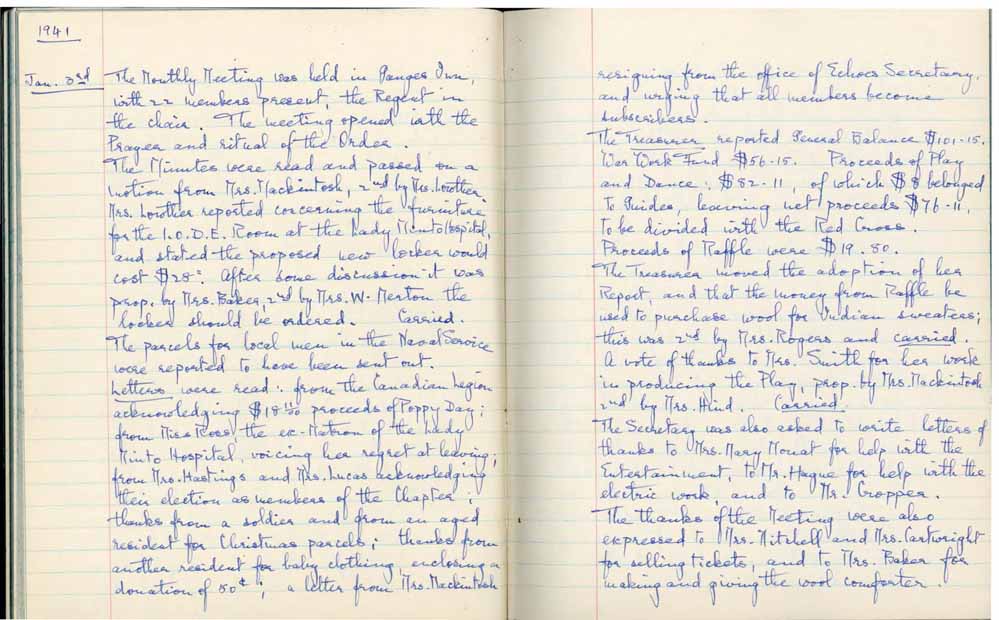 1941
Jan. 3rd The Monthly Meeting was held in Ganges Inn,
with 22 members present, the Regent in
the chair. The meeting opened with the
Prayer and ritual of the Order.
The Minutes were read and passed on a
motion from Mrs. Mackintosh, 2nd by Mrs. Lowther.
Mrs. Lowther reported concerning the furniture
for the I.O.D.E. Room at the Lady Minto Hospital,
and stated the proposed new locker would
cost $28. After some discussion it was
prop. by Mrs. Baker, 2nd by Mrs. W. Merton the
locker should be ordered. Carried.
The parcels for local men in the Naval Service
were reported to have been sent out.
Letters were read: from the Canadian Legion
acknowledging proceeds of Poppy Day;
from Miss Ross, the ex-Matron of the Lady
Minto Hospital, voicing her regret at leaving;
from Mrs. Hastings and Mrs. Lucas acknowledging
their election as members of the Chapter;
thanks from a soldier and from an aged
resident for Christmas parcels; thanks from
another resident for baby clothing, enclosing a
donation of 50¢; a letter from Mrs. Mackintosh
resigning from the office of Echoes Secretary,
and urging that all members become
subscribers.
The Treasurer reported General Balance $101.15.
War Work Fund $56.15. Proceeds of Play
and Dance, $82.11, of which $8 belonged
to Guides, leaving net proceeds $76.11,
to be divided with the Red Cross.
Proceeds of Raffle were $19.80.
The Treasurer moved the adoption of her
Report, and that the money from Raffle be
used to purchase wool for Indian sweaters;
this was 2nd by Mrs. Rogers and carried.
A vote of thanks to Mrs. Smith for her work
in producing the Play, prop. by Mrs. Mackintosh
2nd by Mrs. Hind. Carried.
The Secretary was also asked to write letters of
thanks to Mrs. Mary Mouat for help with the
Entertainment, to Mr. Hague for help with the
electric work, and to Mr. Cropper.
The thanks of the Meeting were also
expressed to Mrs. Mitchell and Mrs. Cartwright
for selling tickets, and to Mrs. Baker for
making and giving the wool comforter.